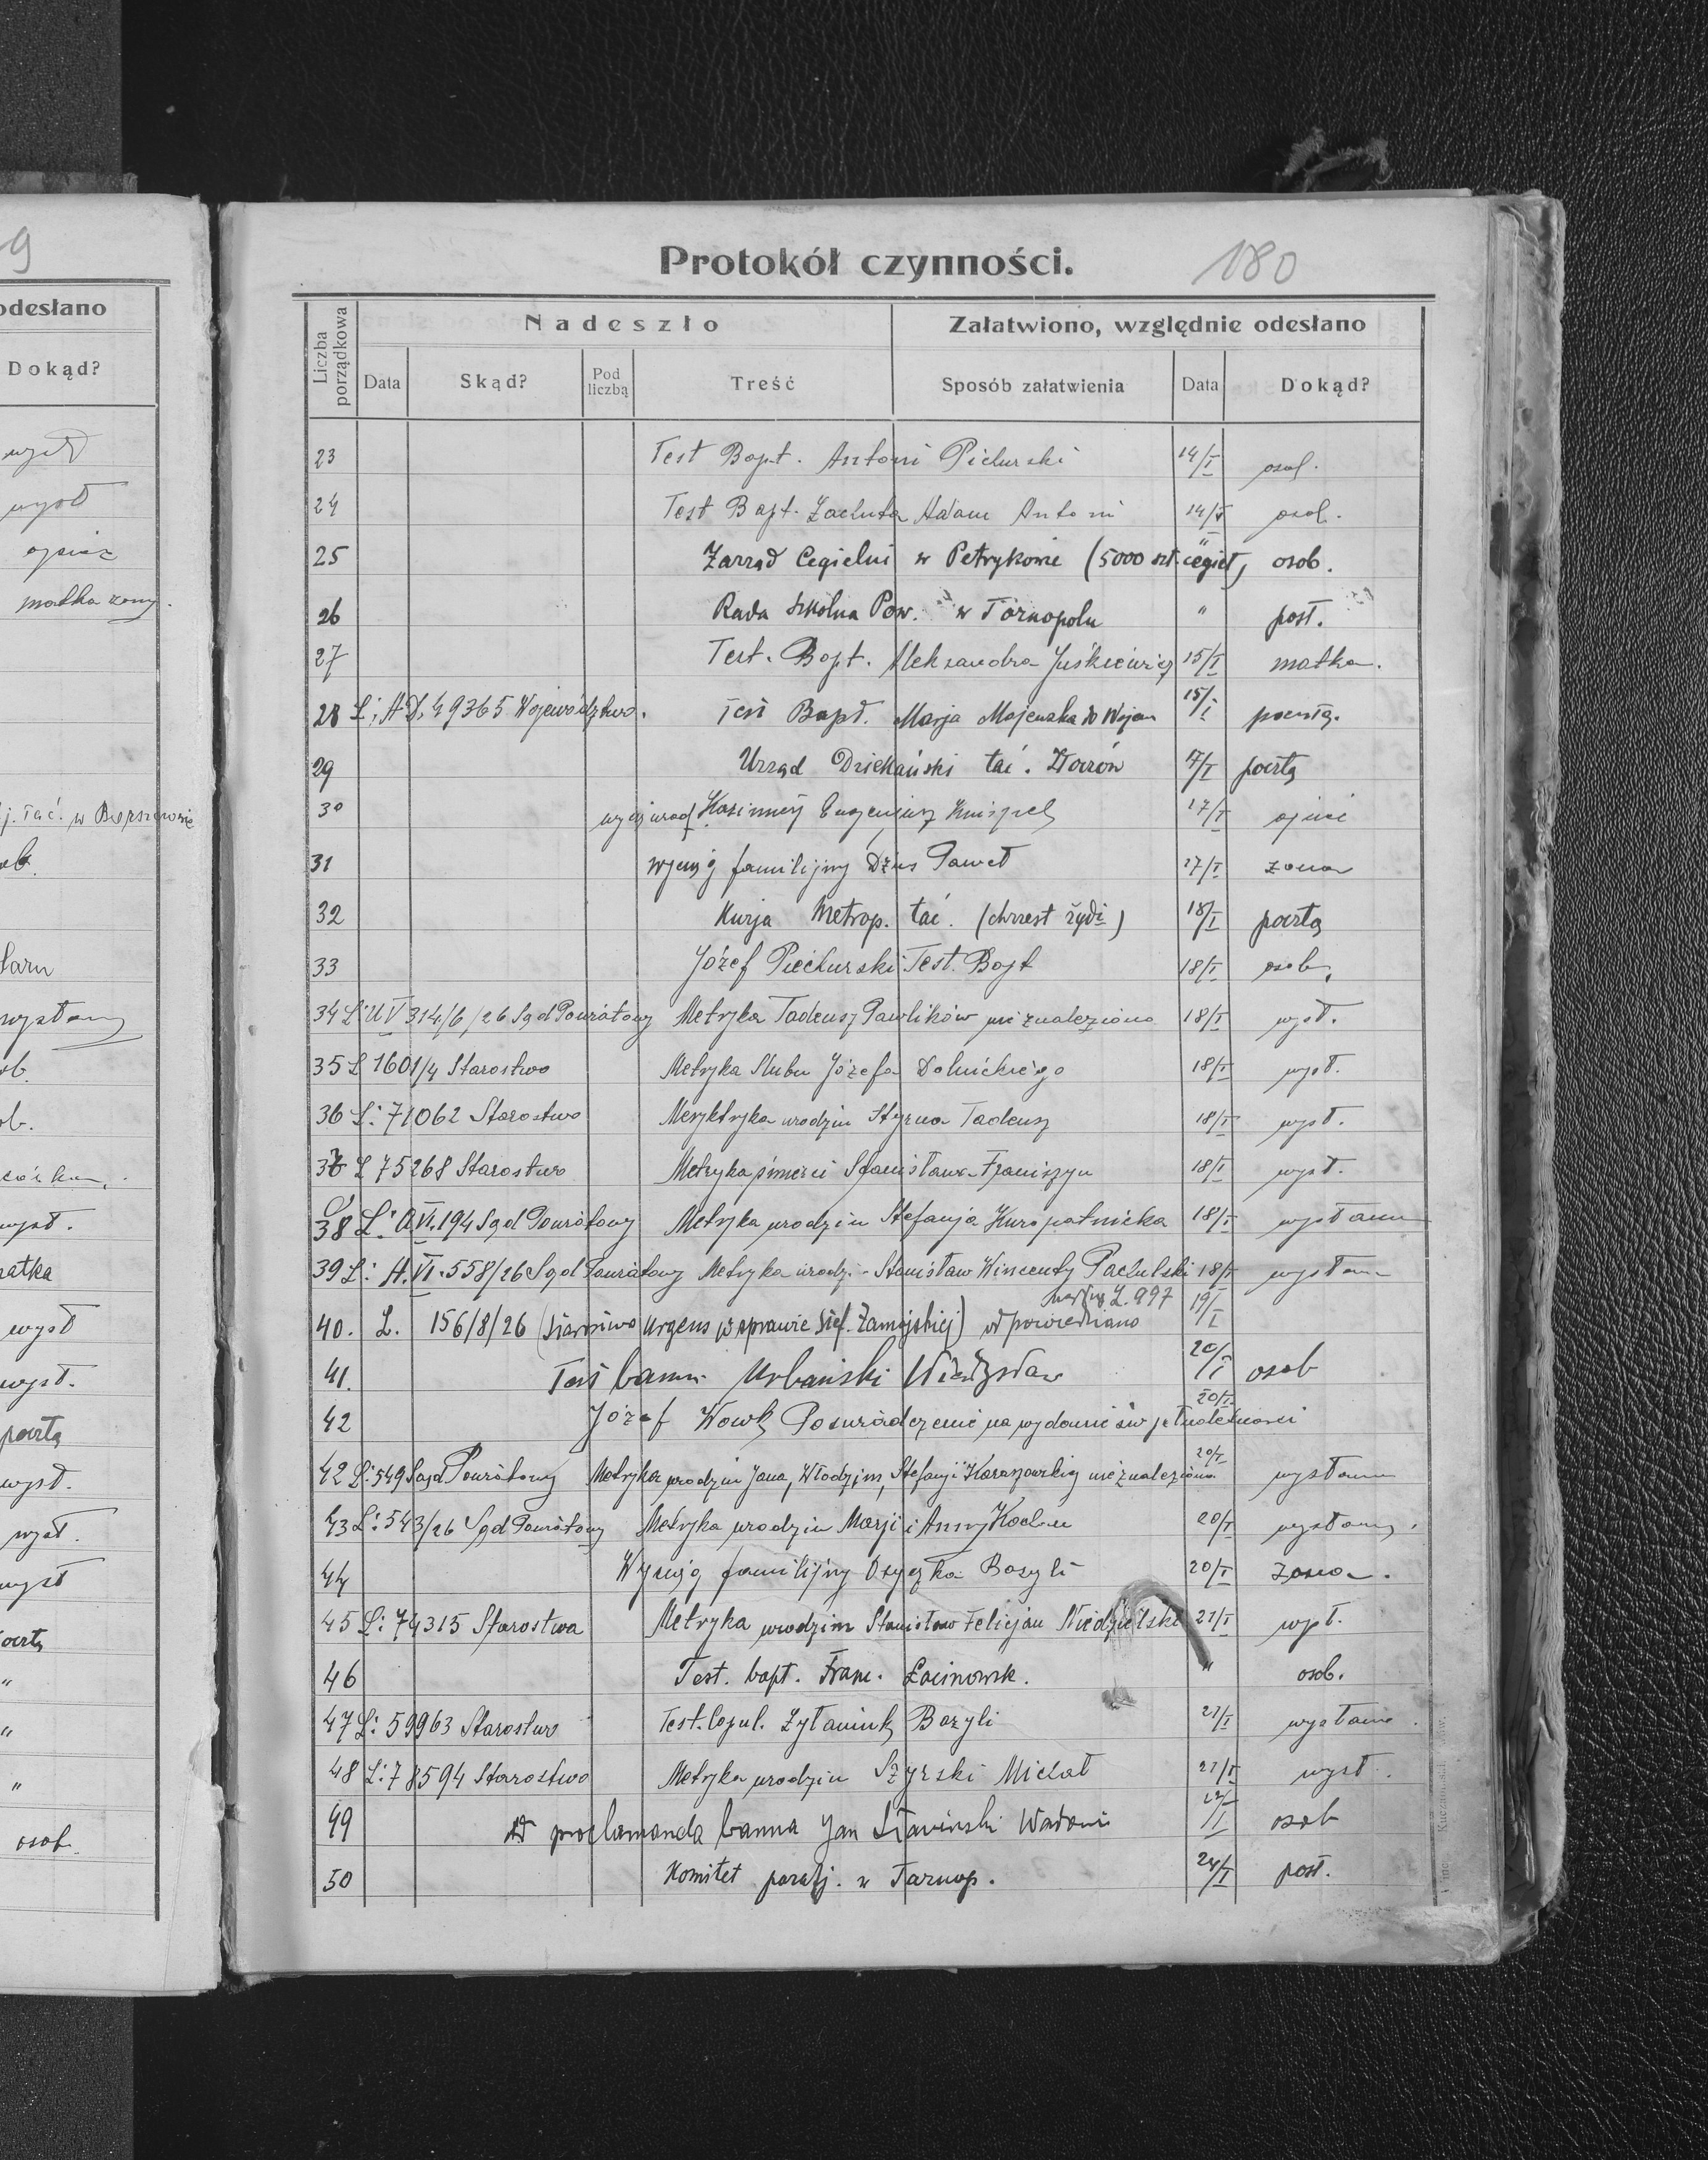 9
odesłano
Dokąd?
wysł
wysł
ojciec
matka
j. łać. w
ob.
ob.
ob.
wysł.
matka
wysł
wysł.
pocztą
wysł.
wysł.
wysł
pocztą
"
"
"
osob.
Protokół czynności.
180
Liczba porządkowa
Nadeszło
Załatwiono, względnie odesłano
Data
Skąd?
Pod liczbą
Treść
Sposób załatwienia
Data
Dokąd?
23 Test Bapt. Antoni Pichurski 14/I osob.
24 Test Bapt. Zachuta Adam Antoni 14/I osob.
25 Zarząd Cegielni w Petrykowie (5000 szt. cegieł) " osob.
26 Rada Szkolna Pow. w Tarnopolu " post.
27 Test. Bapt. Aleksandra Juśkiewicz 15/I matka.
28 L: A D. 49365 Województwo. Test Bapt. Marja Majewska do Wojew 15/I pocztą.
29 Urząd Dziekański łać. Złoczów 17/I pocztą
30 Kazimierz Eugeniusz 17/I ojciec
31 Wyciąg familijny Dzius Paweł 17/I żona
32 Kurja Metrop. łać. (chrzest żydi) 18/I pocztą
33 Józef Piechurski Test. Bapt 18/I osob.
34 L: U V 314/6/26 Sąd Powiatowy Metryka Tadeusz Pawlików nie znaleziono 18/I wysł.
35 L 1601/4 Starostwo Metryka Slubu Józefa Dolnickiego 18/I wysł.
36 L: 71062 Starostwo Meryktryka urodzin Styrna Tadeusz 18/I wysł.
37 L 75268 Starostwo Metryka śmierci Stanisława Franiszyn 18/I wysł.
38 L: A VI. 194 Sąd Powiatowy Metryka urodzin Stefanja Kuropatnicka 18/I wysłano
39 L: A. VI. 558/26 Sąd Powiatowy Metryka urodz. Stanisław Wincenty Pachulski 18/I wysłano
40. L. 156/8/26 (Starostwo Urgens w sprawie Stef. Zamojskiej) odpowiedziano L. 997 19/I
41. Test bann. Urbański Władysław 20/I osob
42 Józef Wowk Poświadczenie na wydanie 20/I
42 L: 549 Sąd Powiatowy Metryka urodzin Jana, Włodzim, Stefanji Karaszowskiej nie znaleziono 20/I wysłano
43 L: 543/26 Sąd Powiatowy Metryka urodzin Marji i Anny Kochu 20/I wysłano.
44 Wyciąg familijny Osyczka Bazyli 20/I żona.
45 L: 74315 Starostwa Metryka urodzin Stanisław Felicjan Niedzielski 21/I wysł.
46 Test. bapt. Franc. Łacinowsk. " osob.
47 L: 59963 Starostwo Test. Copul. Zytaniuk Bazyli 21/I wysłano.
48 L: 78594 Starostwo Metryka urodzin Szyrski Michał 21/I wysł.
49 Ad proclamanda banna Jan Sławinski osob
50 Komitet parafj. w Tarnop. 24/I post.